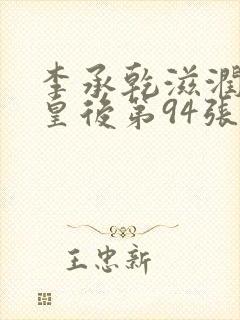 李承乾滋潤
皇後第94張
王忠新